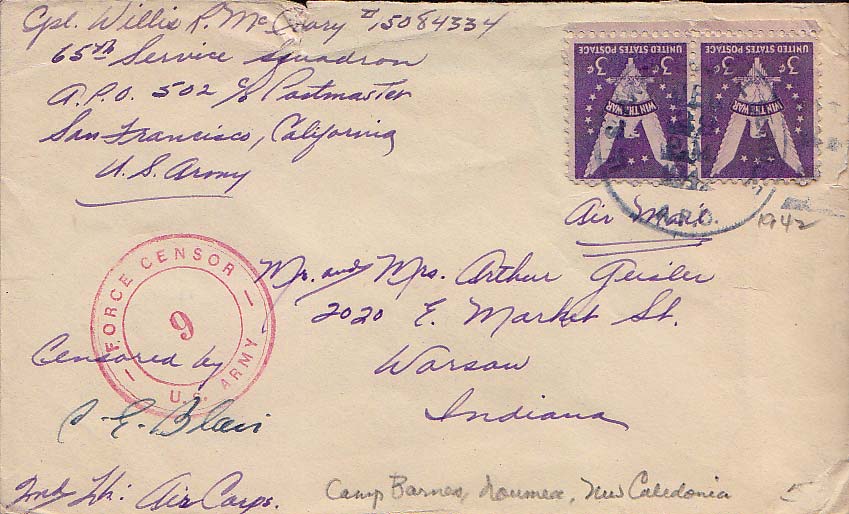 Cpl. Willis R. McCrary #15084334
65th Service Squadron
A.P.O. 502 c/o Postmaster
San Francisco, California
U.S. Army
UNITED STATES POSTAGE
3¢ 3¢
WIN THE WAR
UNITED STATES POSTAGE
3¢ 3¢
WIN THE WAR
A.P.O.
1942
Air Mail
Mr. and Mrs. Arthur Geisler
2020 E. Market St.
Warsaw
Indiana
FORCE CENSOR
9
U.S. ARMY
Censored by
C. E. Blair
2nd Lt. Air Corps.
Camp Barnes, Noumea, New Caledonia
5